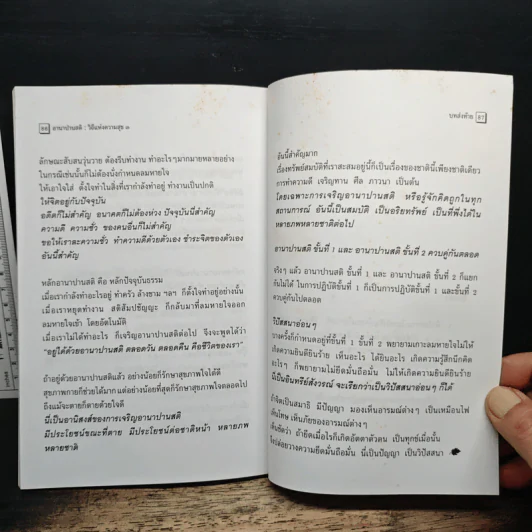 86 อานาปานสติ : วิถีแห่งความสุข ๑
ลักษณะสับสนวุ่นวาย ต้องรีบทำงาน ทำอะไรๆ มากมายหลายอย่าง
ในกรณีเช่นนั้นก็ไม่ต้องนั่งกำหนดลมหายใจ
ให้เอาใจใส่ ตั้งใจทำในสิ่งที่เรากำลังทำอยู่ ทำงานเป็นปกติ
ให้จิตอยู่กับปัจจุบัน
อดีตก็ไม่สำคัญ อนาคตก็ไม่ต้องห่วง ปัจจุบันนี้สำคัญ
ความดี ความชั่ว ของคนอื่นก็ไม่สำคัญ
ขอให้เราละความชั่ว ทำความดีด้วยตัวเอง ชำระจิตของตัวเอง
อันนี้สำคัญ
หลักอานาปานสติ คือ หลักปัจจุบันธรรม
เมื่อเรากำลังทำอะไรอยู่ ทำครัว ล้างชาม ฯลฯ ก็ตั้งใจทำอยู่อย่างนั้น
เมื่อเราหยุดทำงาน สติสัมปชัญญะ ก็กลับมาที่ลมหายใจออก
ลมหายใจเข้า โดยอัตโนมัติ
เมื่อเราไม่ได้ทำอะไร ก็เจริญอานาปานสติต่อไป จึงจะพูดได้ว่า
"อยู่ได้ด้วยอานาปานสติ ตลอดวัน ตลอดคืน คือชีวิตของเรา"
ถ้าอยู่ด้วยอานาปานสติแล้ว อย่างน้อยก็รักษาสุขภาพใจได้ดี
สุขภาพกายก็ช่วยได้มาก แต่อย่างน้อยที่สุดก็รักษาสุขภาพใจตลอดไป
ถึงแม้จะตายก็ตายด้วยใจดี
นี่เป็นอานิสงส์ของการเจริญอานาปานสติ
มีประโยชน์ขณะที่ตาย มีประโยชน์ต่อชาติหน้า หลายภพ
หลายชาติ
บทส่งท้าย 87
อันนี้สำคัญมาก
เรื่องทรัพย์สมบัติที่เราสะสมอยู่นี้ก็เป็นเรื่องของชาตินี้เพียงชาติเดียว
การทำความดี เจริญทาน ศีล ภาวนา เป็นต้น
โดยเฉพาะการเจริญอานาปานสติ หรือรู้จักคิดถูกในทุก
สถานการณ์ อันนี้เป็นสมบัติ เป็นอริยทรัพย์ เป็นที่พึ่งได้ใน
หลายภพหลายชาติต่อไป
อานาปานสติ ขั้นที่ 1 และ อานาปานสติ ขั้นที่ 2 ควบคู่กันตลอด
จริงๆ แล้ว อานาปานสติ ขั้นที่ 1 และ อานาปานสติ ขั้นที่ 2 ก็แยก
กันไม่ได้ ในการปฏิบัติขั้นที่ 1 ก็เป็นการปฏิบัติขั้นที่ 1 และขั้นที่ 2
ควบคู่กันไปตลอด
วิปัสสนาอ่อนๆ
บางครั้งก็กำหนดอยู่ที่ขั้นที่ 1 ขั้นที่ 2 พยายามเกาะลมหายใจไม่ให้
เกิดความยินดียินร้าย เห็นอะไร ได้ยินอะไร เกิดความรู้สึกนึกคิด
อะไรๆ ก็พยายามไม่ยึดมั่นถือมั่น ไม่ให้เกิดความยินดียินร้าย
นี่เป็นอินทรีย์สังวรณ์ จะเรียกว่าเป็นวิปัสสนาอ่อนๆ ก็ได้
ถ้าจิตเป็นสมาธิ มีปัญญา มองเห็นอารมณ์ต่างๆ เป็นเหมือนไฟ
เห็นโทษ เห็นภัยของอารมณ์ต่างๆ
เห็นชัดว่า ถ้ายึดเมื่อไรก็เกิดอัตตาตัวตน เป็นทุกข์เมื่อนั้น
จึงปล่อยวางความยึดมั่นถือมั่น นี่เป็นปัญญา เป็นวิปัสสนา